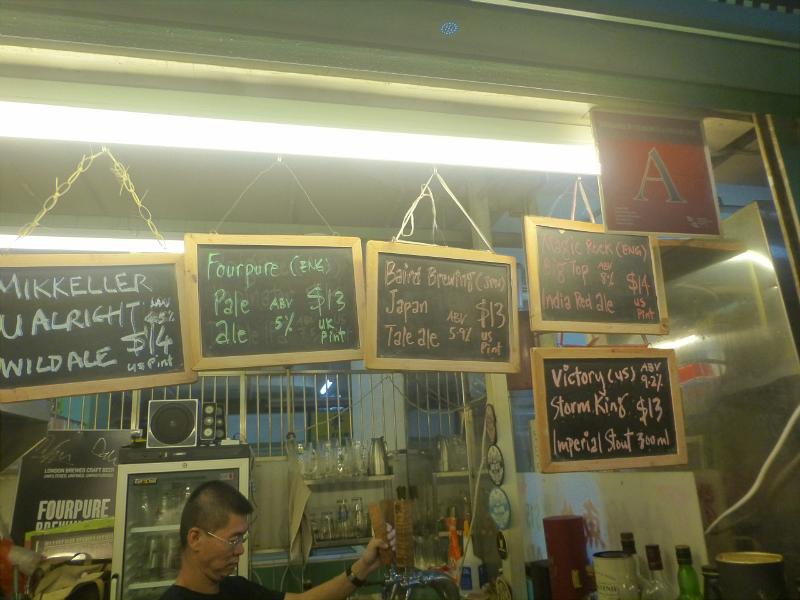 MIKKELLER
U ALRIGHT
WILD ALE $14
us pint
Fourpure (ENG)
Pale ABV $13
ale 5% UK
Pint
Baird Brewing (JPN)
Japan ABV $13
Tale ale 5.9% us
Pint
Magic Rock (ENG)
Big Top ABV $14
India Red ale us
Pint
Victory (US) ABV
9.2%
Storm King $13
Imperial Stout 300ml
A
LONDON BREWED CRAFT BEER
FOURPURE
BREWING